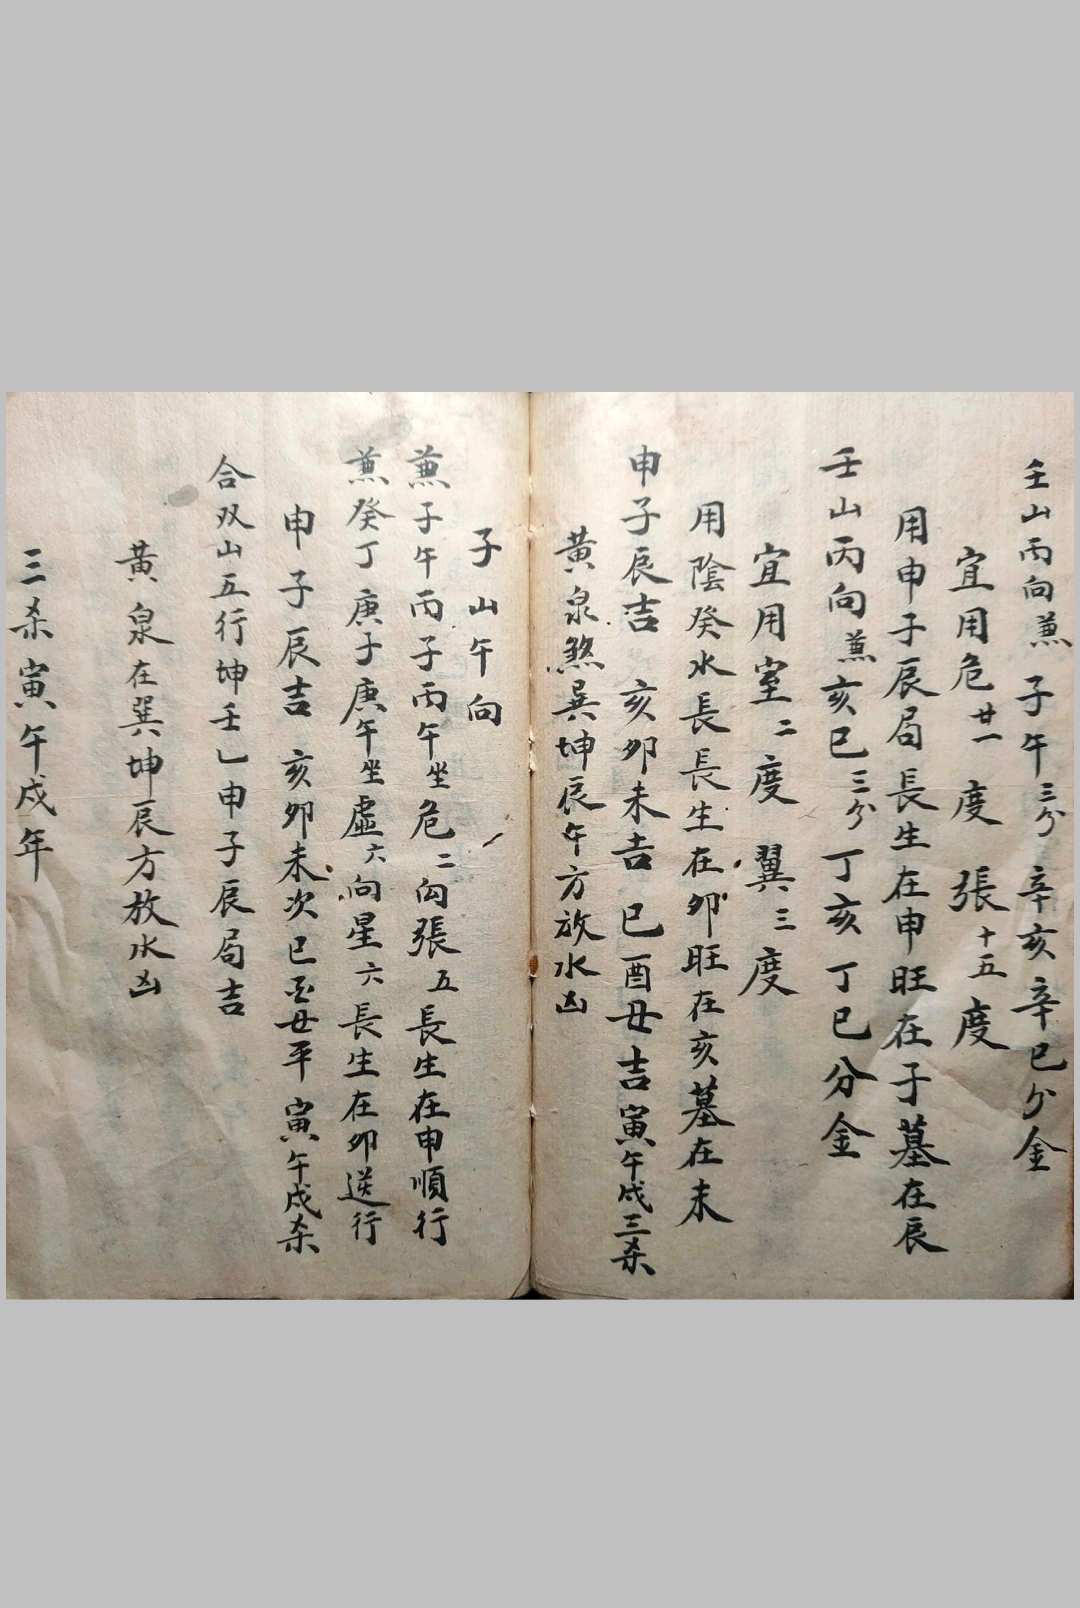 壬山丙向蕪子午三分 辛亥辛巳分金
宜用危廿一度 張十五度
用申子辰局長生在申旺在子墓在辰
壬山丙向蕪亥巳三分 丁亥丁巳分金
宜用室二度 翼三度
用陰癸水長長生在卯旺在亥墓在未
申子辰吉 亥卯未吉 巳酉丑吉寅午戌三杀
黃泉煞巽坤辰午方放水凶
子山午向
蕪子午丙子丙午坐危二向張五長生在申順行
蕪癸丁庚子庚午坐虛六向星六長生在卯送行
申子辰吉 亥卯未次巳酉丑平 寅午戌杀
合双山五行坤壬乙申子辰局吉
黃泉在巽坤辰方放水凶
三杀寅午戌年